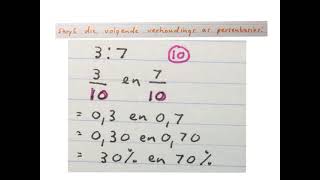 Skryf die volgende verhoudings as persentasies:
3:7 10
3/10 en 7/10
= 0,3 en 0,7
= 0,30 en 0,70
= 30% en 70%